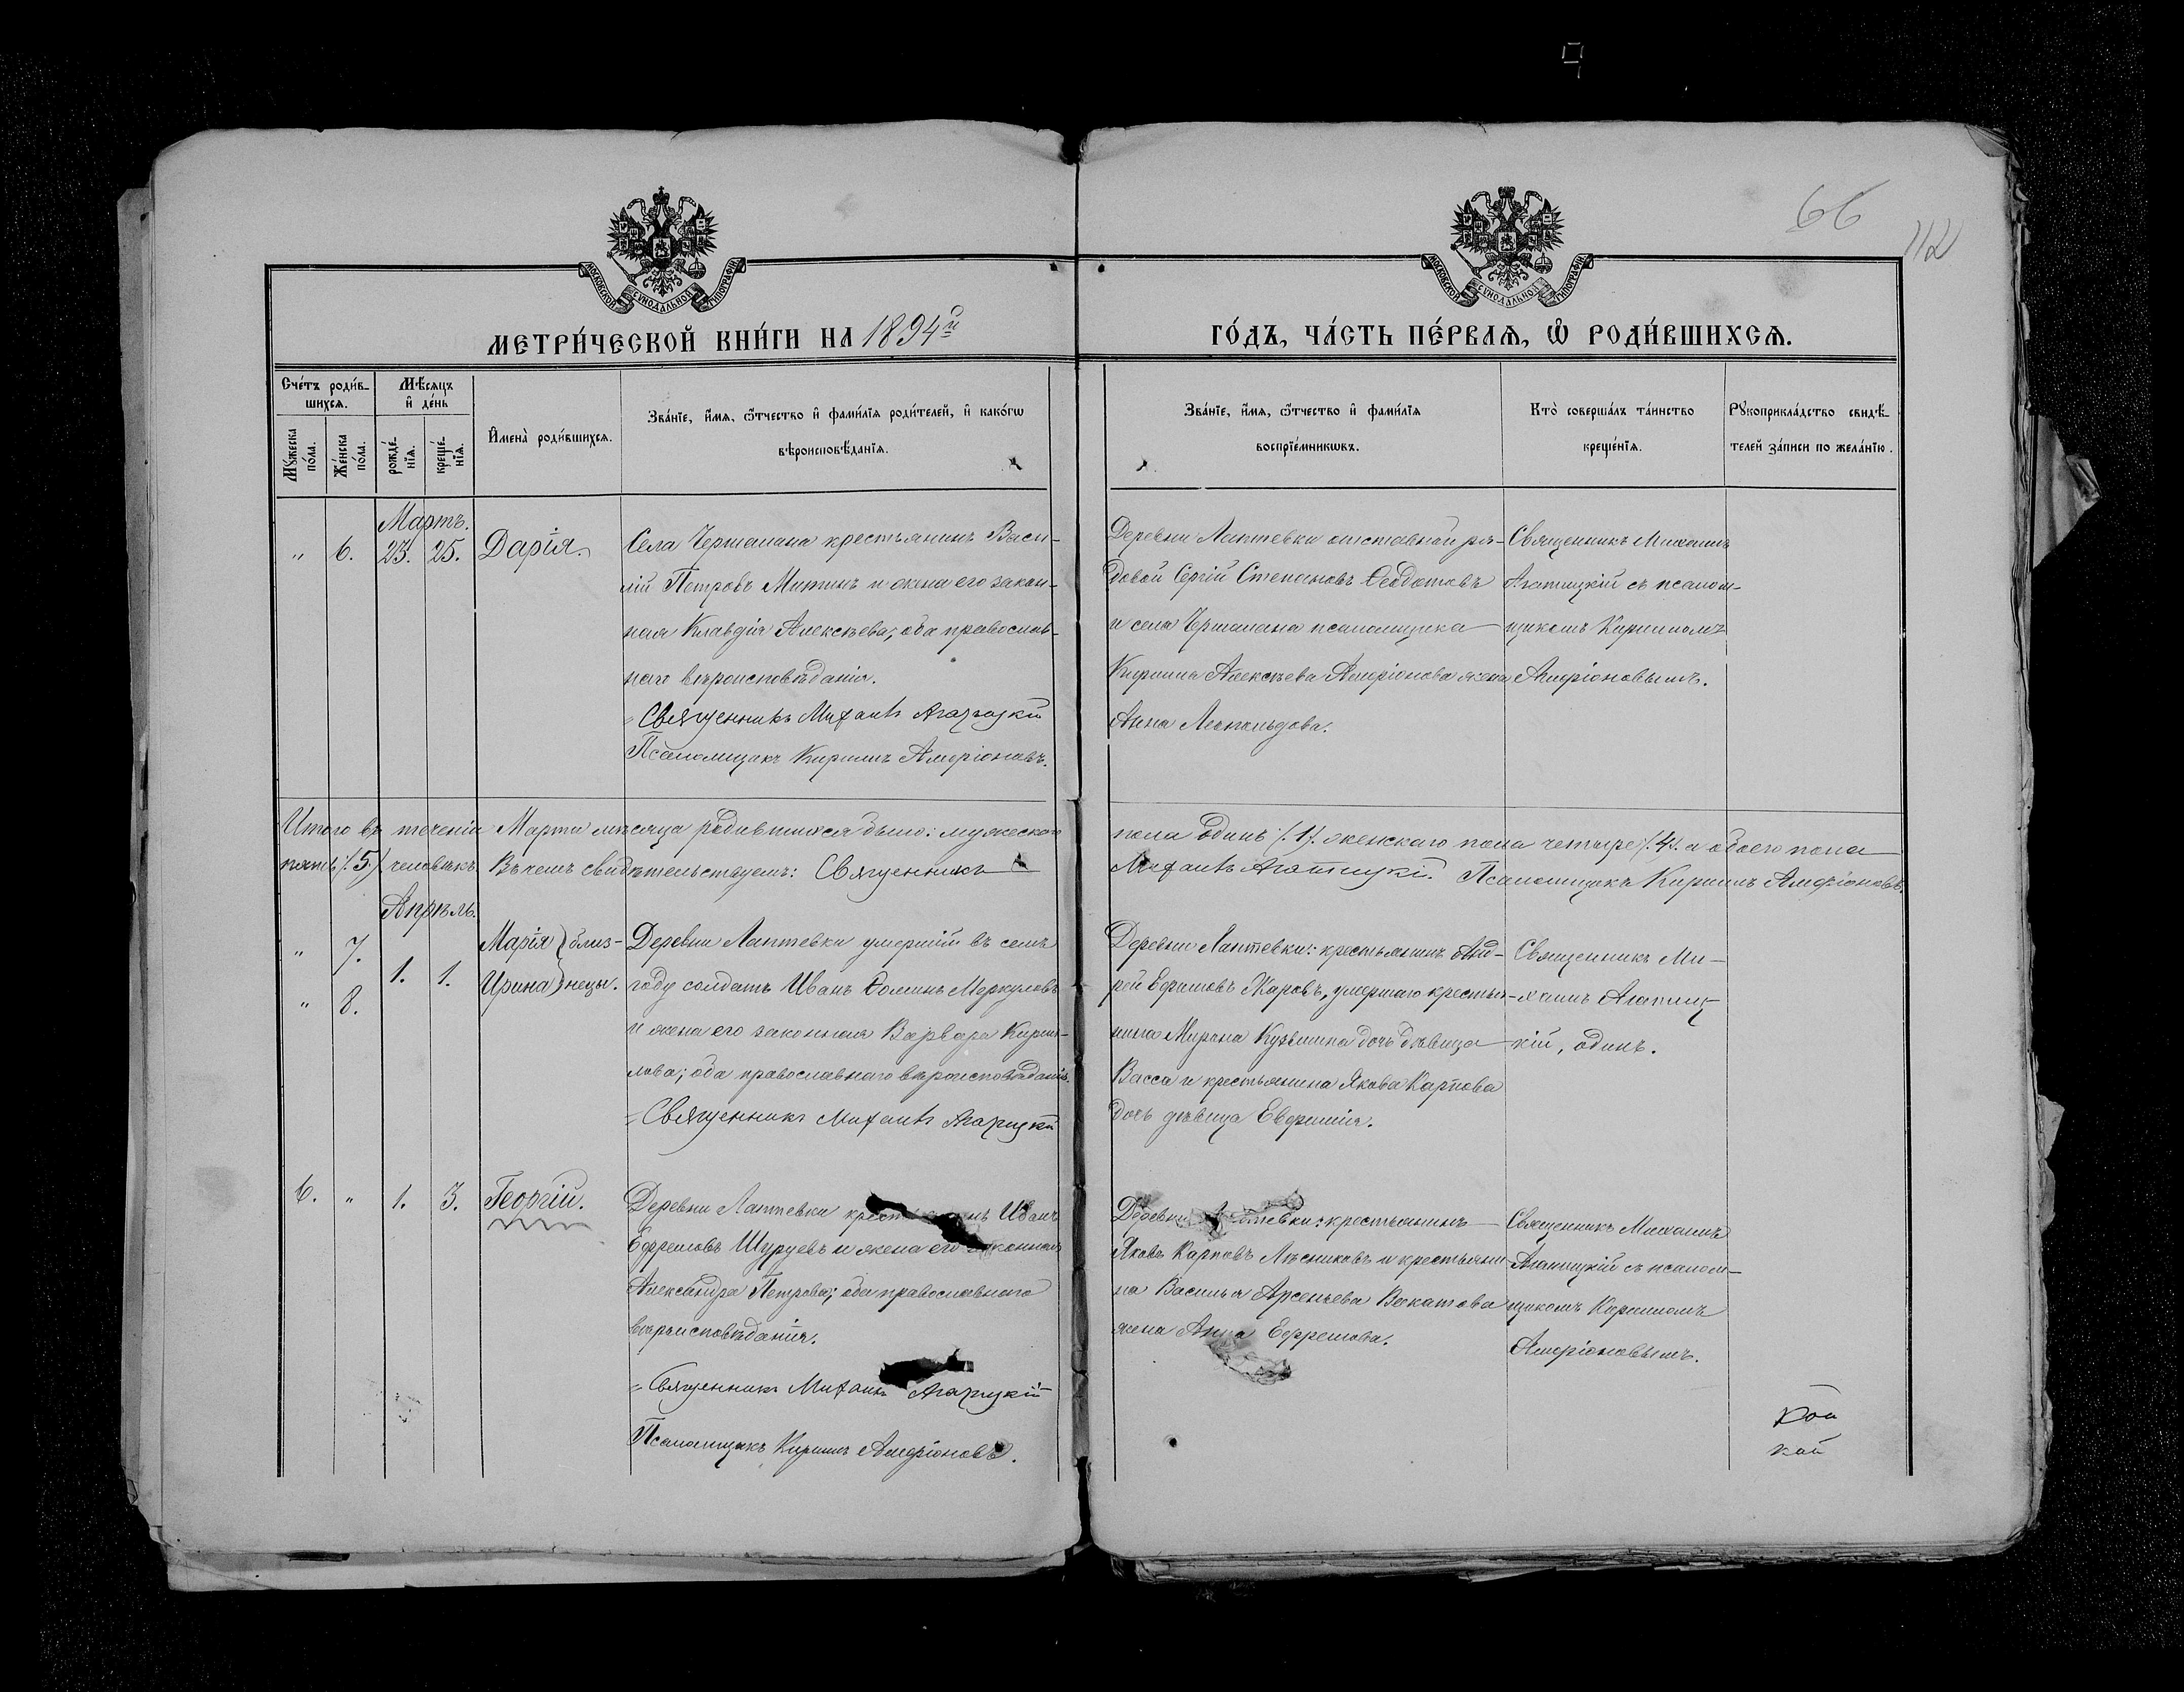 66
112
МОСКОВСКОЙ СѴНОДАЛЬНОЙ ТИПОГРАФІИ
МОСКОВСКОЙ СѴНОДАЛЬНОЙ ТИПОГРАФІИ
МЕТРИ́ЧЕСКОЙ КНИ́ГИ НА 1894й
ГО́ДЪ, ЧА́СТЬ ПЕ́РВАѦ, Ѡ҆ РОДИ́ВШИХСѦ.
Сче́тъ роди́в-
шихсѧ.
Мѣ́сѧцъ
и҆ де́нь
Мꙋ́жеска
по́ла.
Же́нска
по́ла.
рожде́-
нїѧ.
креще́-
нїѧ.
И҆мена̀ роди́вшихсѧ.
Зва́нїе, и҆́мѧ, ѻ҆́тчество и҆ фами́лїѧ роди́телей, и҆ како́гѡ
вѣроисповѣ́данїѧ.
Зва́нїе, и҆́мѧ, ѻ҆́тчество и҆ фами́лїѧ
воспрїе́мникѡвъ.
Кто̀ соверша́лъ та́инство
креще́нїѧ.
Рꙋкоприкла́дство свидѣ́-
телей за́писи по жела́нїю.
Мартъ.
" 6. 23. 25. Дарія.
Села Чермалана крестьянинъ Васи-
лій Петровъ Митинъ и жена его закон-
ная Клавдія Алексѣева; оба православ-
наго вѣроисповѣданія.
Священникъ Михаилъ Агапицкій
Псаломщикъ Кириллъ Амфіоновъ.
Деревни Лаптевки отставной ря-
довой Сергій Степановъ Ѳеодотовъ
и села Чермалана псаломщика
Кирилла Алексѣева Амфіонова жена
Анна Леопольдова.
Священникъ Михаилъ
Агапицкій съ псалом-
щикомъ Кирилломъ
Амфіоновымъ.
Итого въ теченіи Марта мѣсяца родившихся было: мужескаго
пола одинъ (1). женскаго пола четыре (4). а обоего пола
пять (5) человѣкъ. Въ чемъ свидѣтельствуемъ: Священникъ
Михаилъ Агапицкій. Псаломщикъ Кириллъ Амфіоновъ.
Апрѣль.
" 7. Марія } близ-
1. 1.
" 8. Ирина } нецы.
Деревни Лаптевки умершій въ семъ
году солдатъ Иванъ Ѳоминъ Меркуловъ
и жена его законная Варвара Кирил-
лова; оба православнаго вѣроисповѣданія.
Священникъ Михаилъ Агапицкій
Деревни Лаптевки: крестьянинъ Анд-
рей Ефимовъ Жаровъ, умершаго крестья-
нина Мирона Кузьмина дочь дѣвица
Васса и крестьянина Якова Карпова
дочь дѣвица Евфимія.
Священникъ Ми-
хаилъ Агапиц-
кій, одинъ.
6. " 1. 3. Георгій.
Деревни Лаптевки Иванъ
Ефремовъ Шуруевъ и жена его законная
Александра Петрова; оба православнаго
вѣроисповѣданія.
Священникъ Михаилъ Агапицкій
Псаломщикъ Кириллъ Амфіоновъ.
Деревни Лаптевки: крестьянинъ
Яковъ Карповъ Лѣсниковъ и крестьяни-
на Василья Арсеньева жена Анна Ефремова.
Священникъ Михаилъ
Агапицкій съ псалом-
щикомъ Кирилломъ
Амфіоновымъ.